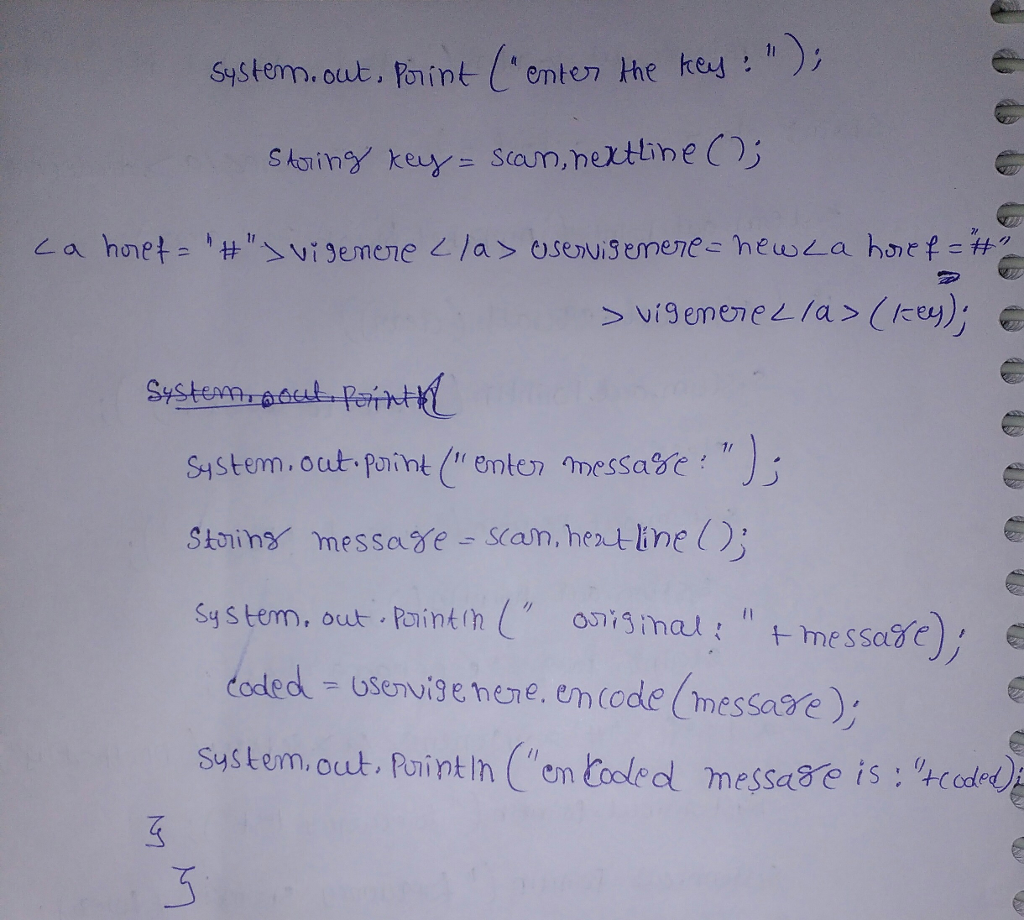 System.out.Print ("enter the key : ");
String key = scan,nextline ();
<a href = "#">vigenere </a> uservigenere = new<a href = "#"
> vigenere</a> (key);
System.out.Print
System.out.print ("enter message : ");
String message = scan,nextline ();
System.out.Println (" original : " + message);
coded = uservigenere.encode (message);
System.out.Println ("encoded message is : "+coded);
}
}